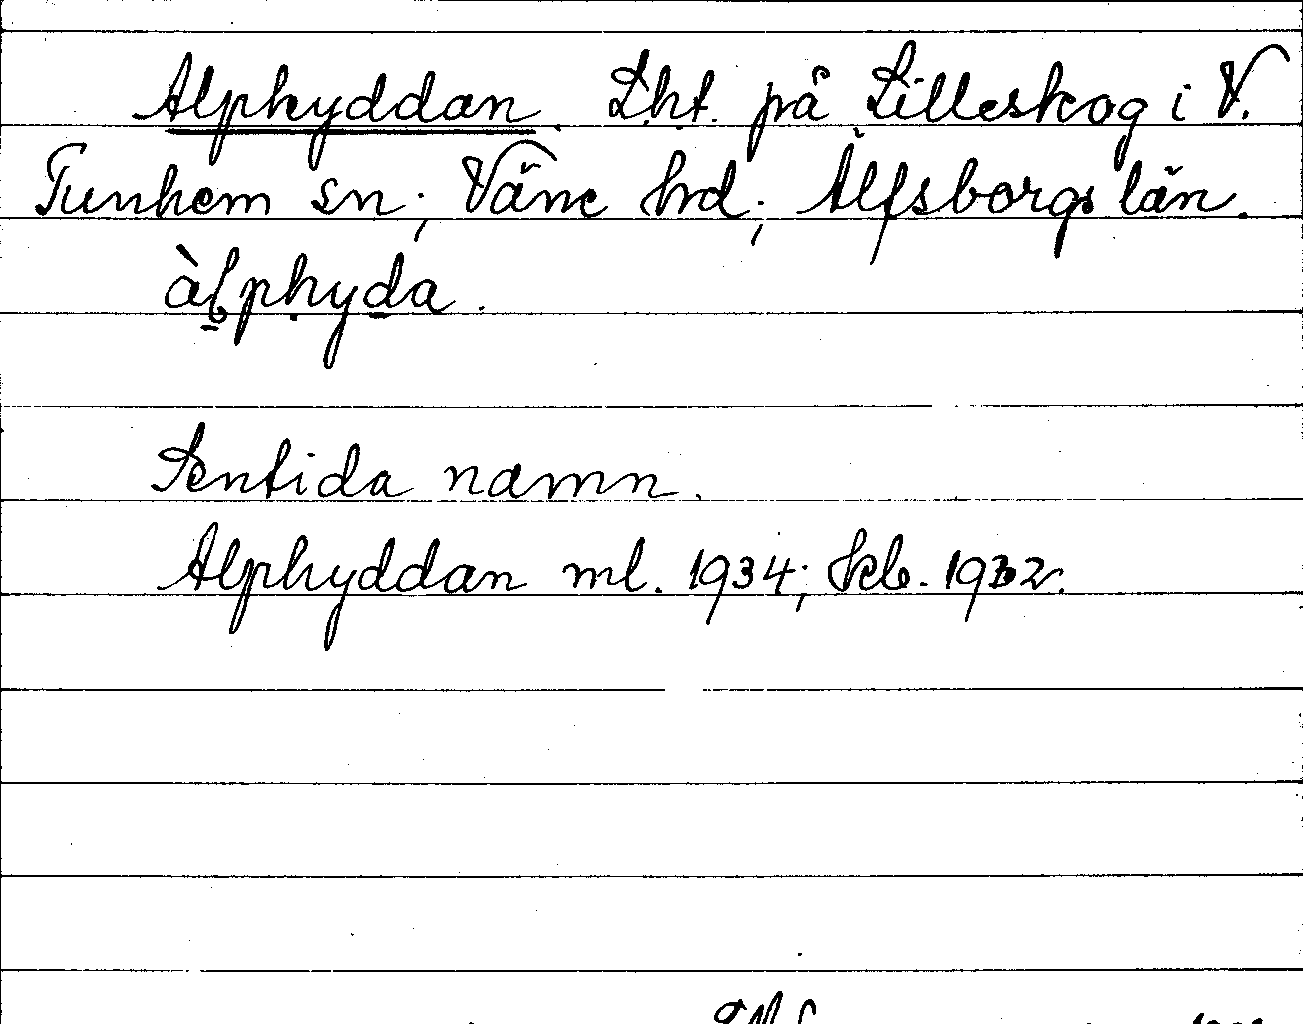 Alphyddan. Lht. på Lilleskog i V.
Tunhem sn; Väne hd; Älfsborgs län.
àlphyda.
Sentida namn.
Alphyddan ml. 1934; Skb. 1932.